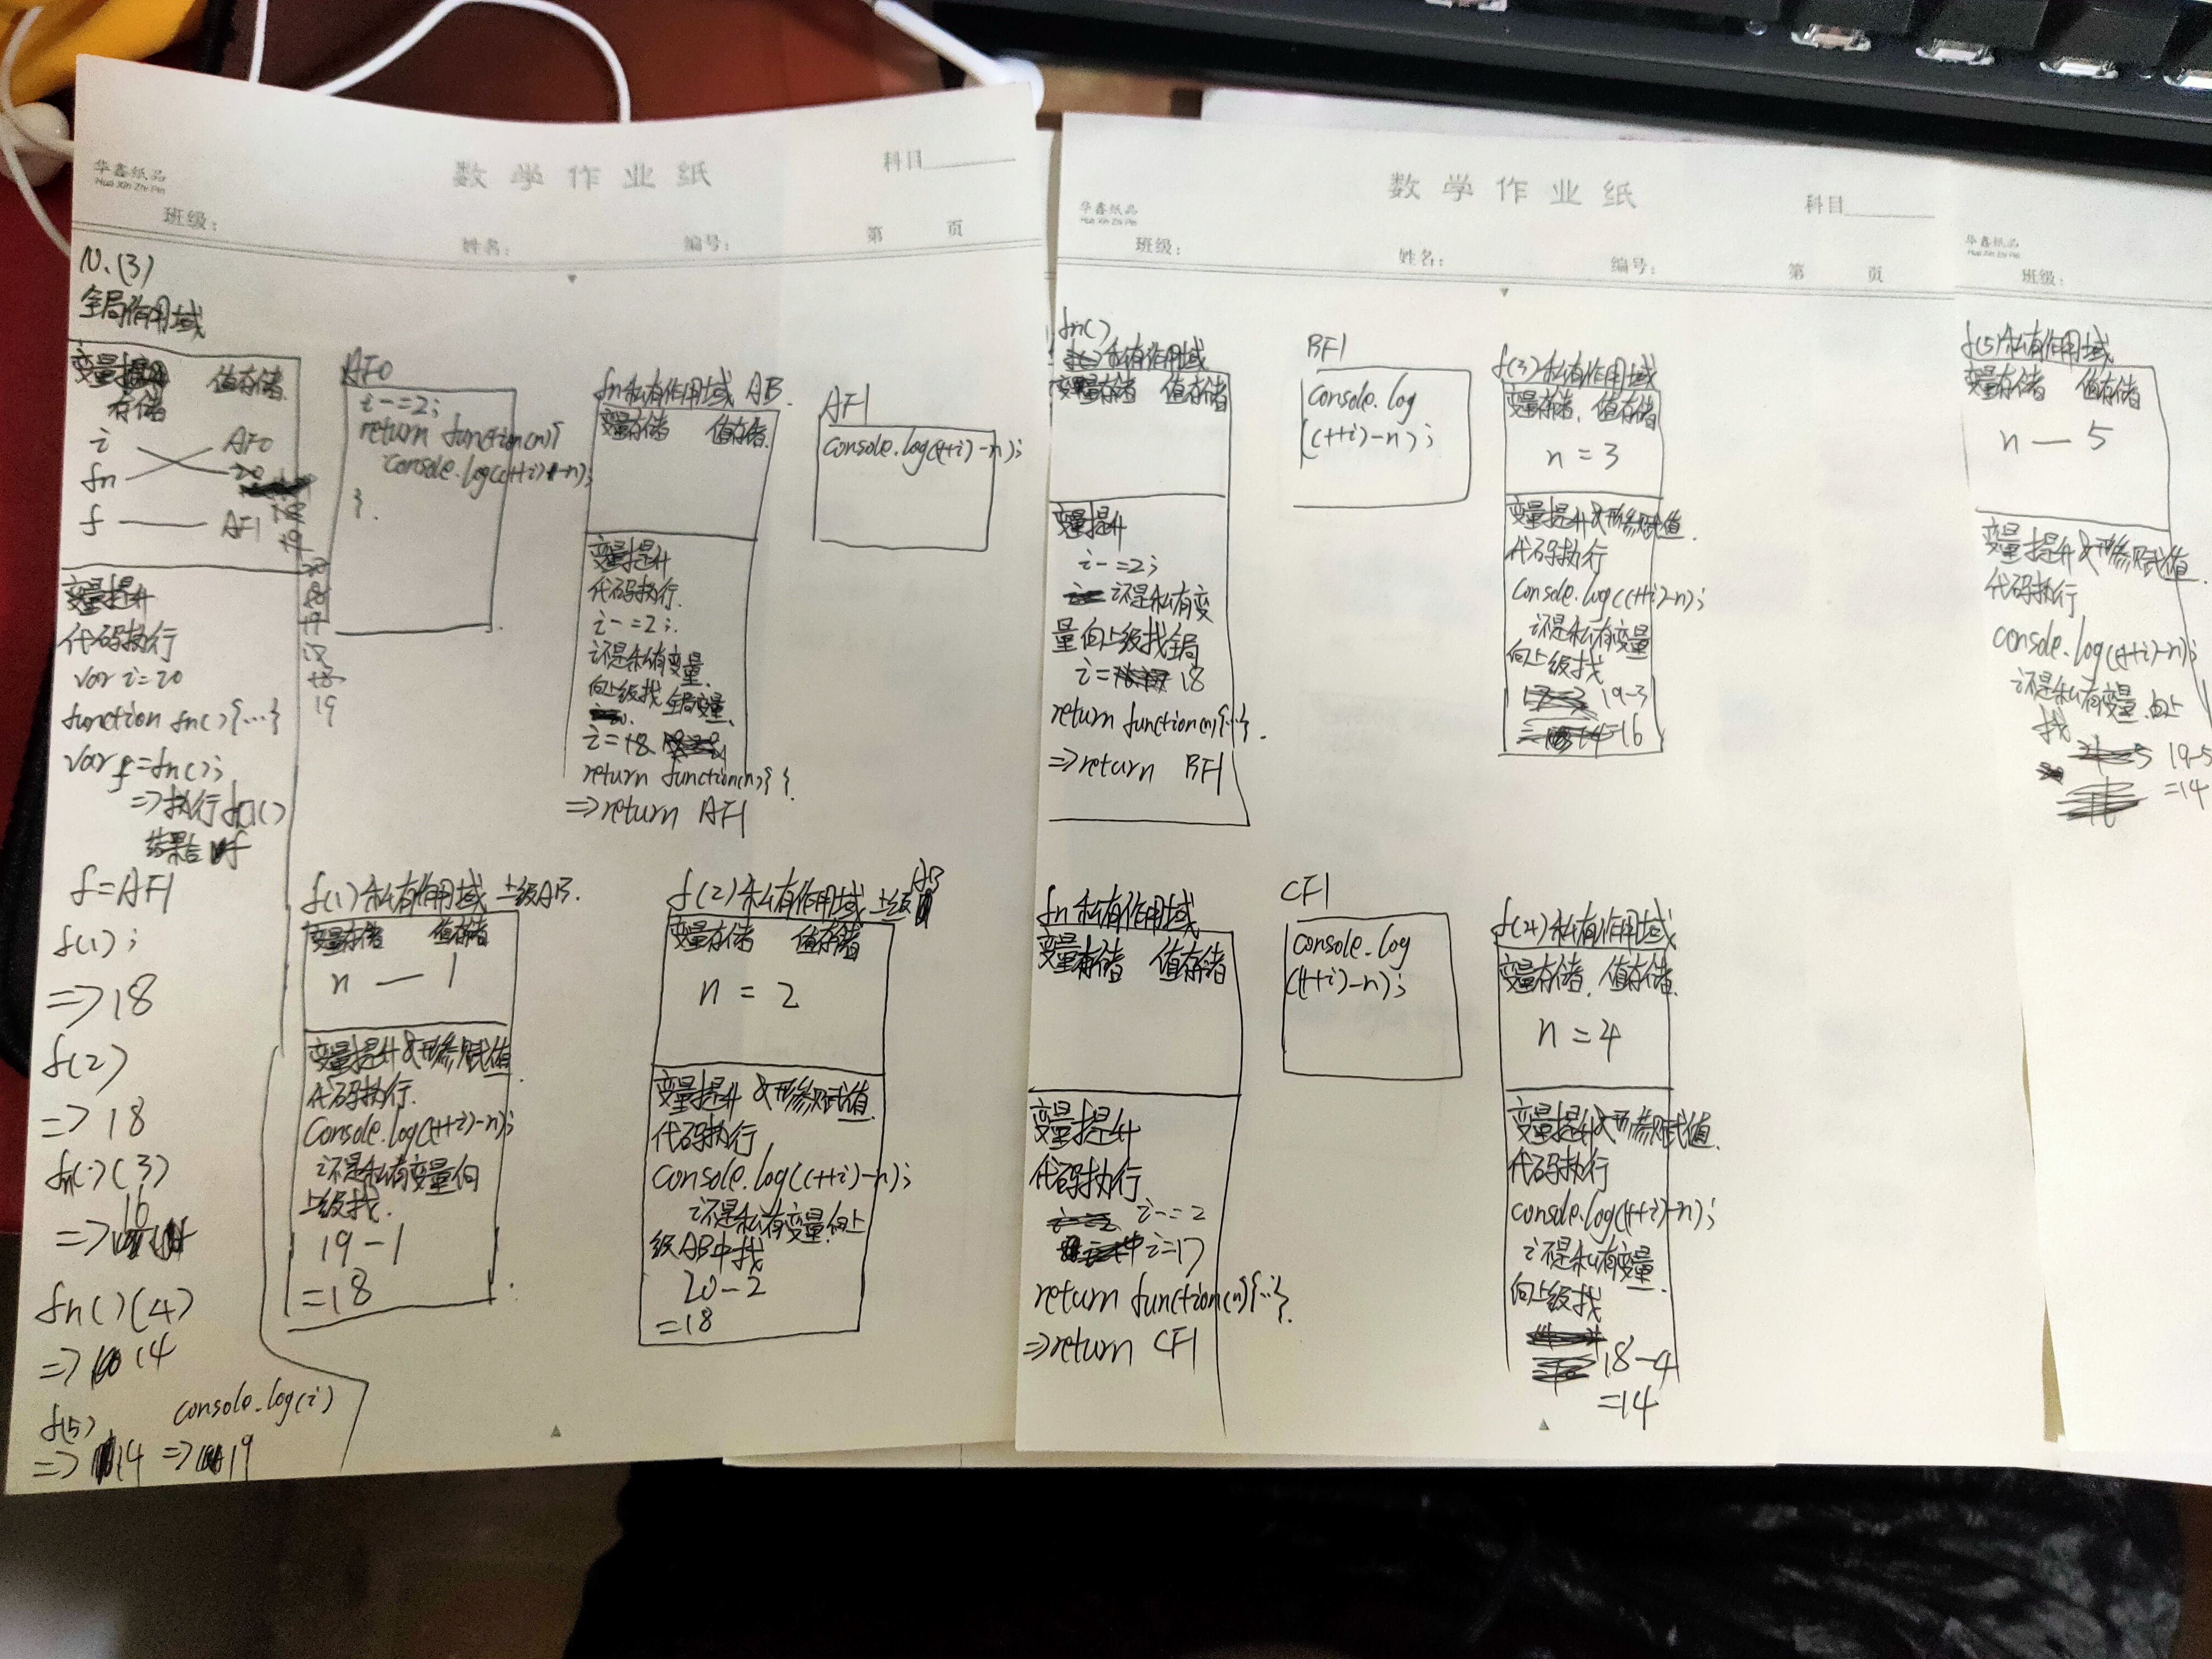 华鑫纸品
Hua Xin Zhi Pin
数学作业纸
科目
班级：
姓名：
编号：
第 页
10.(3)
全局作用域
变量提升 值存储
存储
i AF0
fn 20
f AF1
19
变量提升
代码执行
var i=20
function fn(){...}
var f=fn();
=>执行fn()
结果给f
f=AF1
f(1);
=>18
f(2)
=>18
fn()(3)
=>16
fn()(4)
=>14
f(5)
=>14
console.log(i)
=>19
AF0
i-=2;
return function(n){
console.log((++i)-n);
}.
fn私有作用域 AB.
变量存储 值存储.
变量提升
代码执行.
i-=2;.
i不是私有变量.
向上级找 全局变量.
i=18.
return function(n){ }.
=>return AF1
AF1
console.log((++i)-n);
f(1)私有作用域 上级AB.
变量存储 值存储
n — 1
变量提升&形参赋值.
代码执行.
console.log((++i)-n);
i不是私有变量向
上级找.
19-1
=18
f(2)私有作用域 上级AB
变量存储 值存储
n = 2
变量提升 &形参赋值.
代码执行
console.log((++i)-n);
i不是私有变量.向上
级AB中找
20-2
=18
华鑫纸品
Hua Xin Zhi Pin
数学作业纸
科目
班级：
姓名：
编号：
第 页
fn()
私有作用域
变量存储 值存储
变量提升
i-=2;
i不是私有变
量向上级找全局
i=18
return function(n){...}.
=>return BF1
BF1
console.log
((++i)-n);
f(3)私有作用域
变量存储. 值存储
n = 3
变量提升&形参赋值.
代码执行
console.log((++i)-n);
i不是私有变量
向上级找
19-3
=16
fn 私有作用域
变量存储 值存储
变量提升
代码执行
i-=2
i=17
return function(n){...}.
=>return CF1
CF1
console.log
((++i)-n);
f(4)私有作用域
变量存储. 值存储.
n = 4
变量提升&形参赋值.
代码执行
console.log((++i)-n);
i不是私有变量.
向上级找
18-4
=14
华鑫纸品
Hua Xin Zhi Pin
班级：
f(5)私有作用域
变量存储 值存储
n — 5
变量提升&形参赋值.
代码执行
console.log((++i)-n);
i不是私有变量.向上
找
19-5
=14